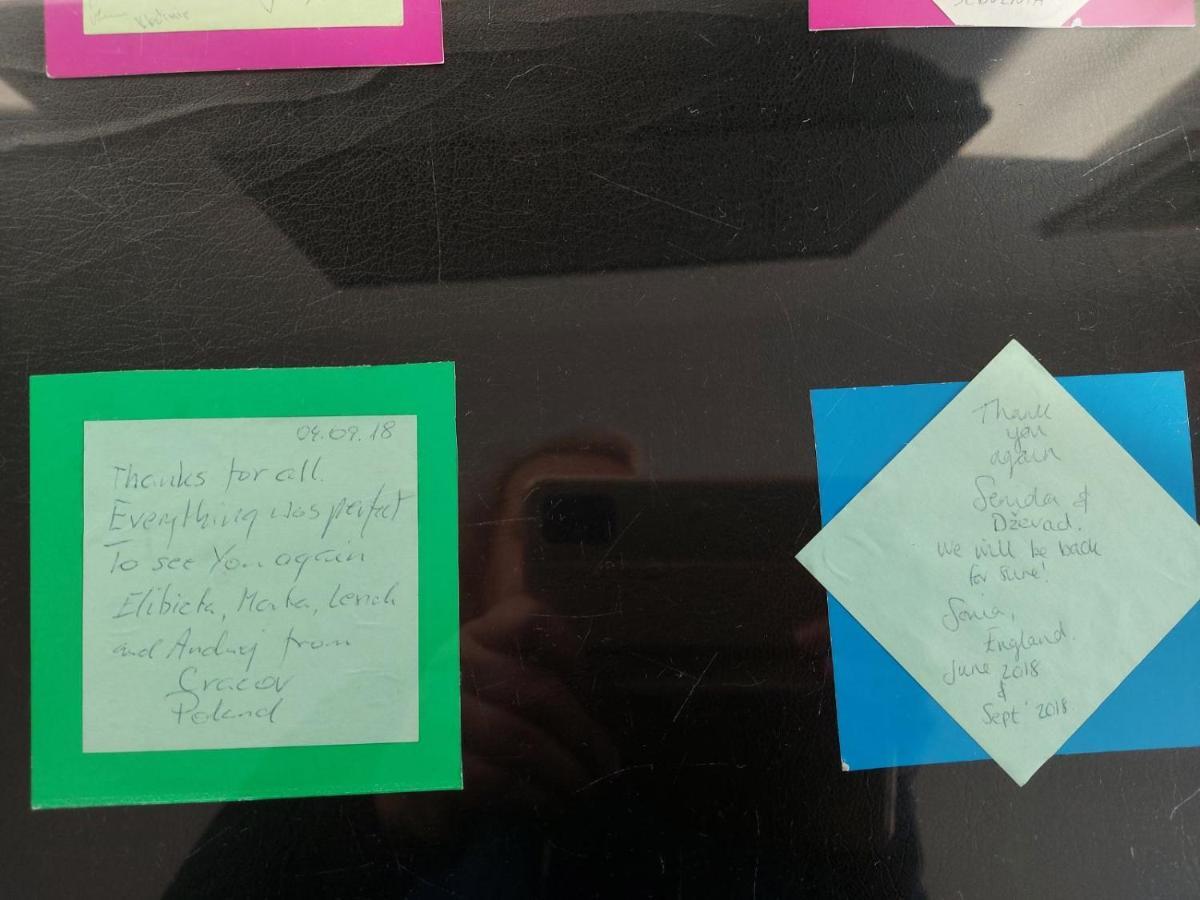 SLOVENIA
04.09.18
Thanks for all.
Everything was perfect
To see You again
Elibieta, Marta, Lench
and Andrzej from
Cracov
Poland
Thank
you
again
Senida &
Dževad.
We will be back
for sure!
Sonia,
England.
June 2018
&
Sept' 2018